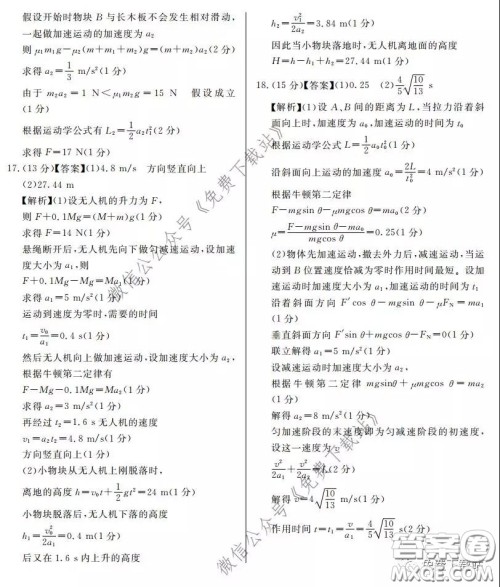 假设开始时物块 B 与长木板不会发生相对滑动，
一起做加速运动的加速度为 a₂
则 μ₁m₁g－μ₂(m₁＋m₂)g＝(m₁＋m₂)a₂
求得 a₂＝1/3 m/s²(1 分)
由于 m₂a₂＝1 N＜μ₁m₁g＝15 N 假设成立
(1 分)
根据运动学公式有 L₂＝1/2a₂t₂²(2 分)
求得 F＝17 N(1 分)
17.(13 分)【答案】(1)4.8 m/s 方向竖直向上
(2)27.44 m
【解析】(1)设无人机的升力为 F，
则 F＋0.1Mg＝(M＋m)g(1 分)
求得 F＝14 N(1 分)
悬绳断开后，无人机先向下做匀减速运动，设加速
度大小为 a₁，则
F＋0.1Mg－Mg＝Ma₁(1 分)
求得 a₁＝5 m/s²(1 分)
运动到速度为零时，需要的时间
t₁＝v₀/a₁＝0.4 s(1 分)
然后无人机向上做加速运动，设加速度大小为 a₂，
根据牛顿第二定律有
F－Mg－0.1Mg＝Ma₂(1 分)
求得 a₂＝3 m/s²(1 分)
再经过 t₂＝1.6 s 无人机的速度
v₁＝a₂t₂＝4.8 m/s(1 分)
方向竖直向上(1 分)
(2)小物块从无人机上刚脱落时，
离地的高度 h＝v₀t＋1/2gt²＝24 m(1 分)
小物块脱落后，无人机下落的高度
h₁＝v₀²/2a₁＝0.4 m(1 分)
后又在 1.6 s 内上升的高度
h₂＝v₁²/2a₂＝3.84 m(1 分)
因此当小物块落地时，无人机离地面的高度
H＝h－h₁＋h₂＝27.44 m(1 分)
18.(15 分)【答案】(1)0.25 (2)4/5√(10/13) s
【解析】(1)设 A、B 间的距离为 L，当拉力沿着斜
面向上时，加速度为 a₀，加速运动的时间为 t₀
根据运动学公式 L＝1/2a₀t₀²(1 分)
沿斜面向上运动的加速度 a₀＝2L/t₀²＝4 m/s²(1 分)
根据牛顿第二定律
F－mgsin θ－μmgcos θ＝ma₀(2 分)
μ＝(F－mgsin θ－ma₀)/(mgcos θ)＝0.25(1 分)
(2)物体先加速运动，撤去外力后，减速运动，当运
动到 B 位置速度恰减为零时作用时间最短。设加
速运动时加速度大小为 a₁，加速运动的时间为 t₁
沿着斜面方向 F′cos θ－mgsin θ－μFN＝ma₁
(2 分)
垂直斜面方向 F′sin θ＋mgcos θ－FN＝0(1 分)
联立解得 a₁＝5 m/s²(1 分)
设减速运动时加速度大小为 a₂，
根据牛顿第二定律 mgsinθ＋μmgcosθ＝ma₂
(1 分)
解得 a₂＝8 m/s²(1 分)
匀加速阶段的末速度即为匀减速阶段的初速度，
设这一速度为 v
v²/2a₁＋v²/2a₂＝L(2 分)
解得 v＝4√(10/13) m/s(1 分)
作用时间 t＝t₁＝v/a₁＝4/5√(10/13) s(1 分)
微信公众公众号《免费下载站》
微信公众号《免费下载站》